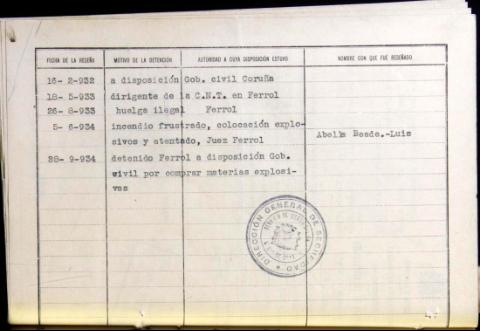 FECHA DE LA RESEÑA MOTIVO DE LA DETENCIÓN AUTORIDAD A CUYA DISPOSICIÓN ESTUVO NOMBRE CON QUE FUÉ RESEÑADO
16- 2-932 a disposición Gob. civil Coruña
18- 5-933 dirigente de la C.N.T. en Ferrol
26- 8-933 huelga ilegal Ferrol
5- 6-934 incendio frustrado, colocación explo-
sivos y atentado, Juez Ferrol Abella Beade.-Luis
28- 9-934 detenido Ferrol a disposición Gob.
civil por comprar materias explosi-
vas
DIRECCIÓN GENERAL DE SEGURIDAD